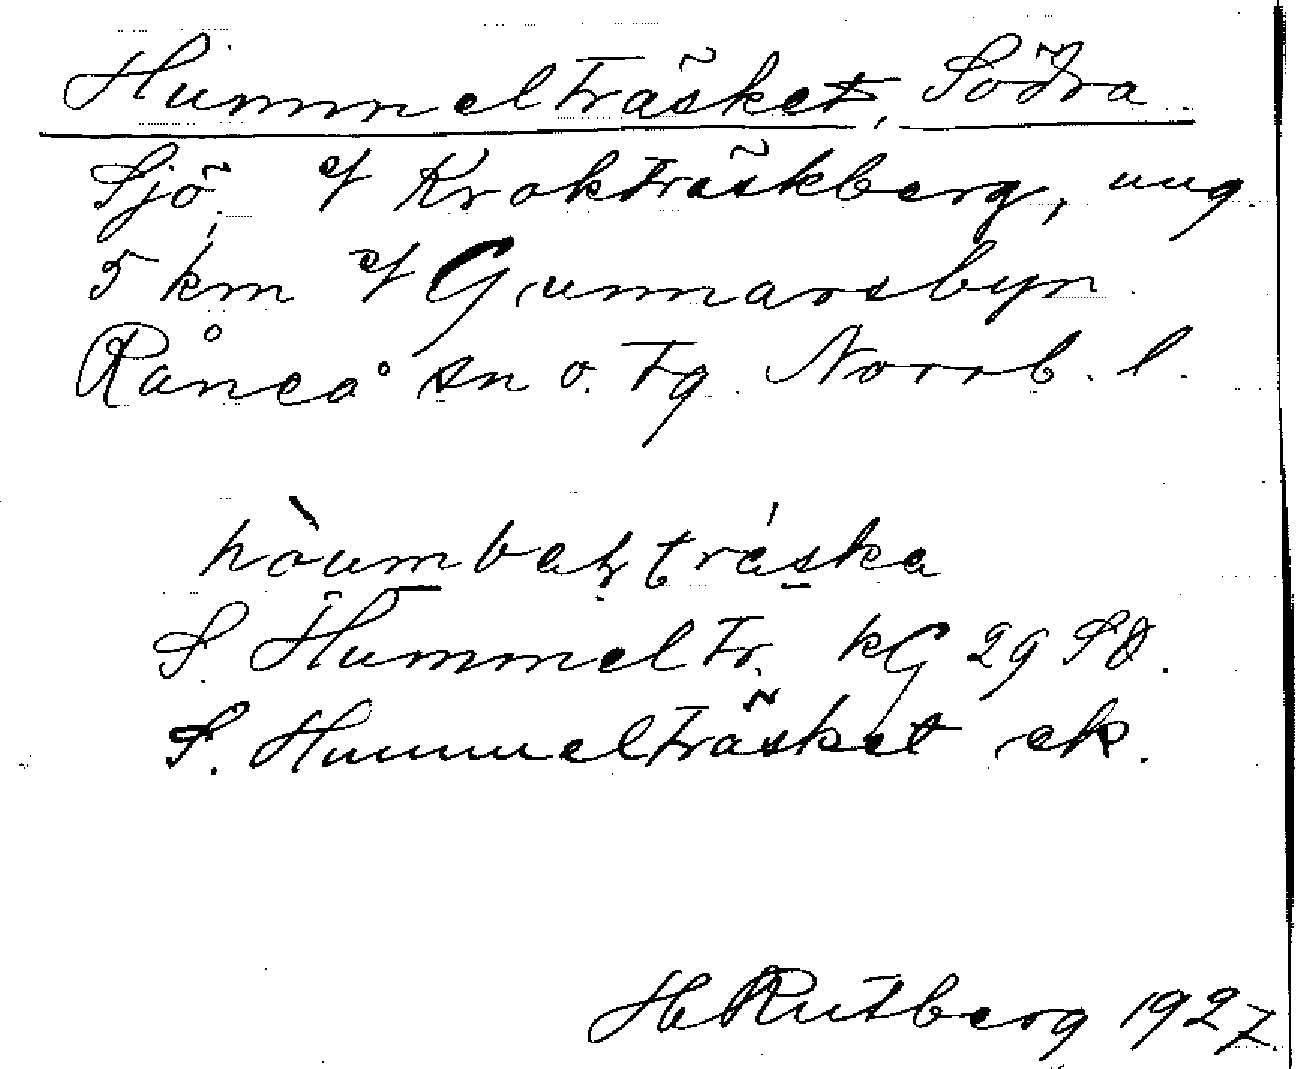 Hummelträsket, Södra
Sjö i Krokträskberg, ung.
5 km Gunnarsbyn
Råneå sn o. tg. Norrb. l.
S. Hummeltr. kG 29 SO.
S. Hummelträsket ek.
H Rutberg 1927.